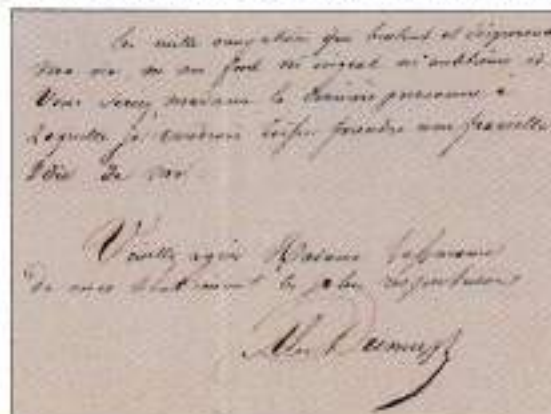 Les mille occupations que traînent et
ma vie ne me font ni ingrat ni oublieux et
Vous seriez madame la dernière personne à
laquelle je voudrais laisser prendre une pareille
idée de moi.
Veuillez agréer Madame l'assurance
de mes sentiments les plus respectueux
Alex Dumas